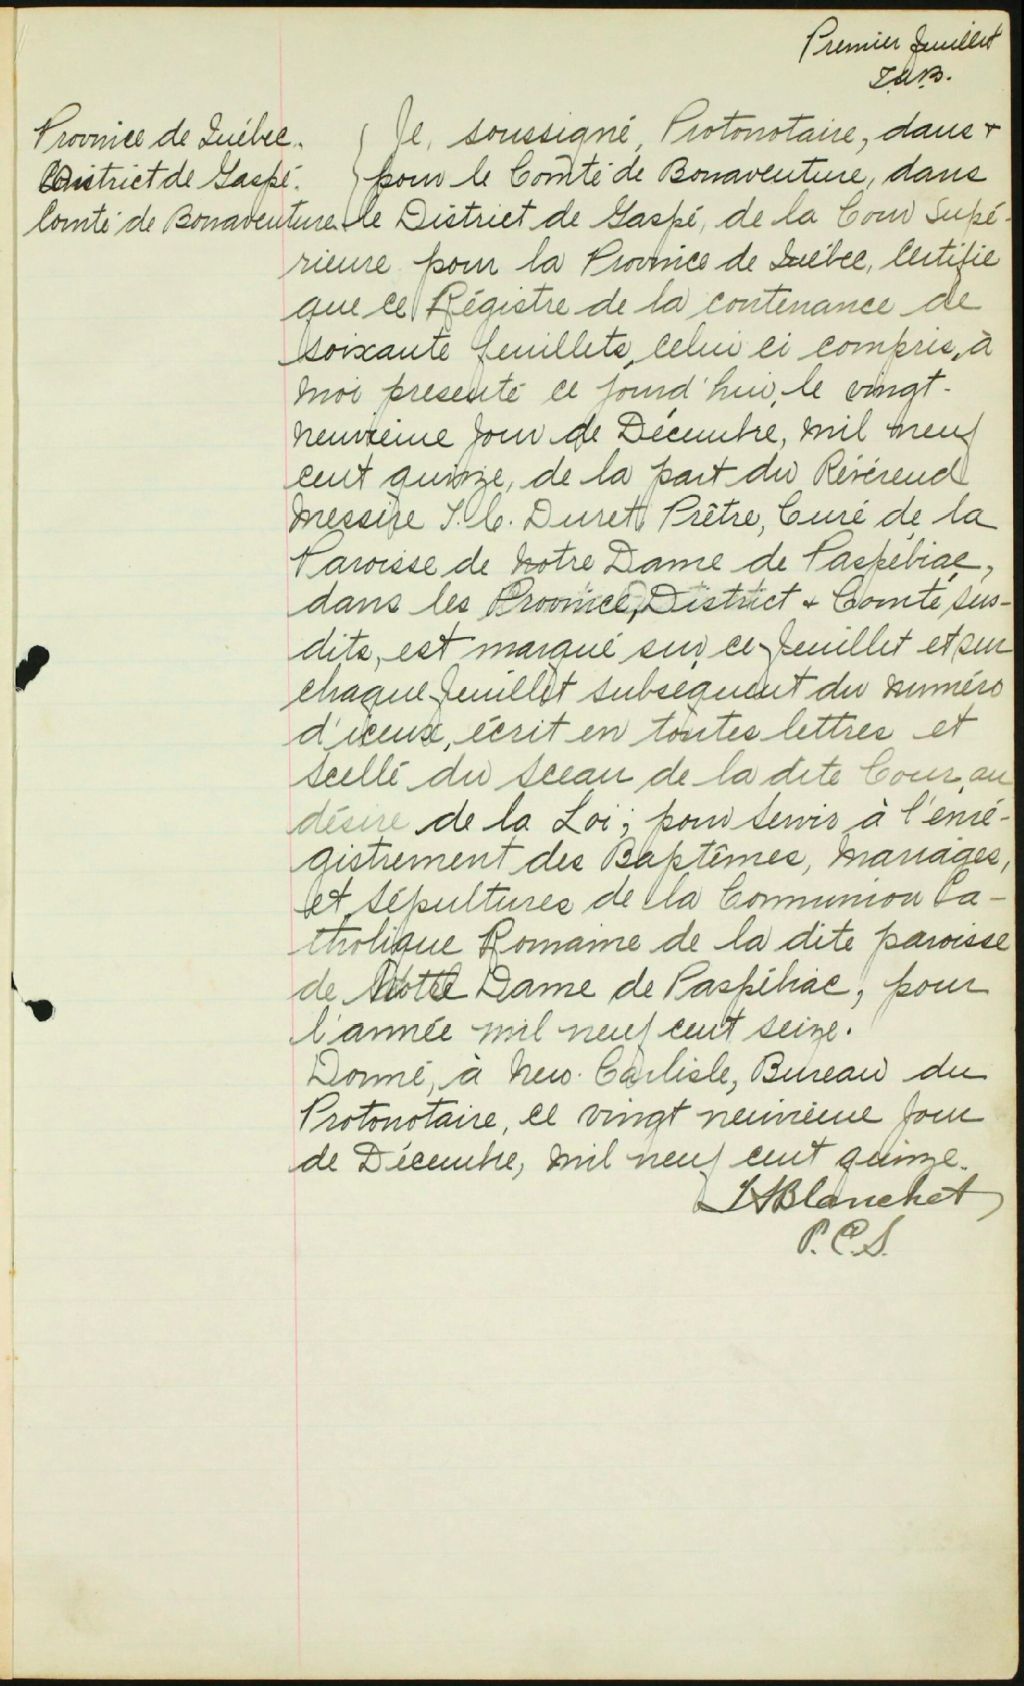 Premier feuillet
Province de Québec.
District de Gaspé.
Comté de Bonaventure
Je, soussigné, Protonotaire, dans +
pour le Comté de Bonaventure, dans
le District de Gaspé, de la Cour Supé-
rieure pour la Province de Québec, Certifie
que ce Régistre de la contenance de
soixante feuillets, celui ci compris, à
moi presenté ce jourd'hui, le vingt-
neuvième Jour de Décembre, mil neuf
cent quinze, de la part du Révérend
Messire J. C. Duret Prêtre, Curé de la
Paroisse de Notre Dame de Paspébiac,
dans les Province, District + Comté sus-
dits, est marqué sur ce feuillet et sur
chaque feuillet subsequent du numéro
d'iceux, écrit en toutes lettres et
scellé du sceau de la dite Cour, au
désire de la Loi; pour servir à l'enré-
gistrement des Baptêmes, Mariages,
et Sépultures de la Communion Ca-
tholique Romaine de la dite paroisse
de Notre Dame de Paspébiac, pour
l'année mil neuf cent seize.
Donné, à New Carlisle, Bureau du
Protonotaire, ce vingt neuvième Jour
de Décembre, mil neuf cent quinze.
Blanchet
P.C.S.